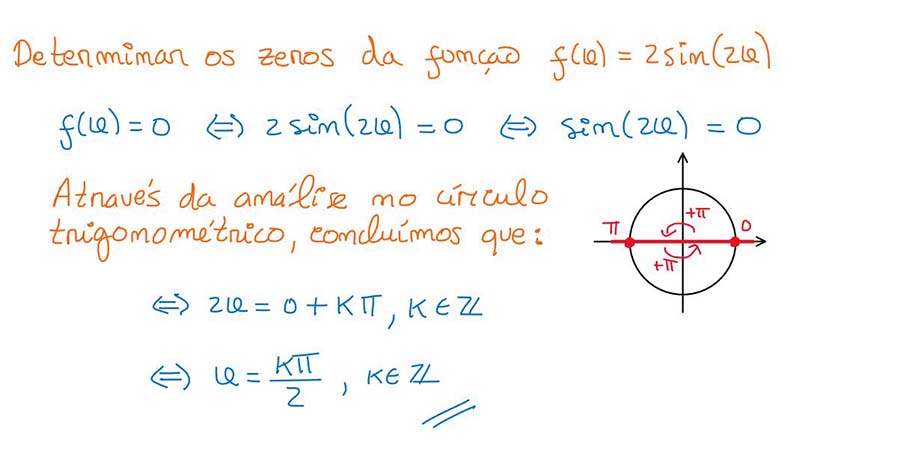 Determinar os zeros da função f(x) = 2sin(2x)
f(x) = 0 ⇔ 2sin(2x) = 0 ⇔ sin(2x) = 0
Através da análise no círculo
trigonométrico, concluímos que:
π +π 0
+π
⇔ 2x = 0 + kπ, k ∈ ℤ
⇔ x = kπ/2, k ∈ ℤ